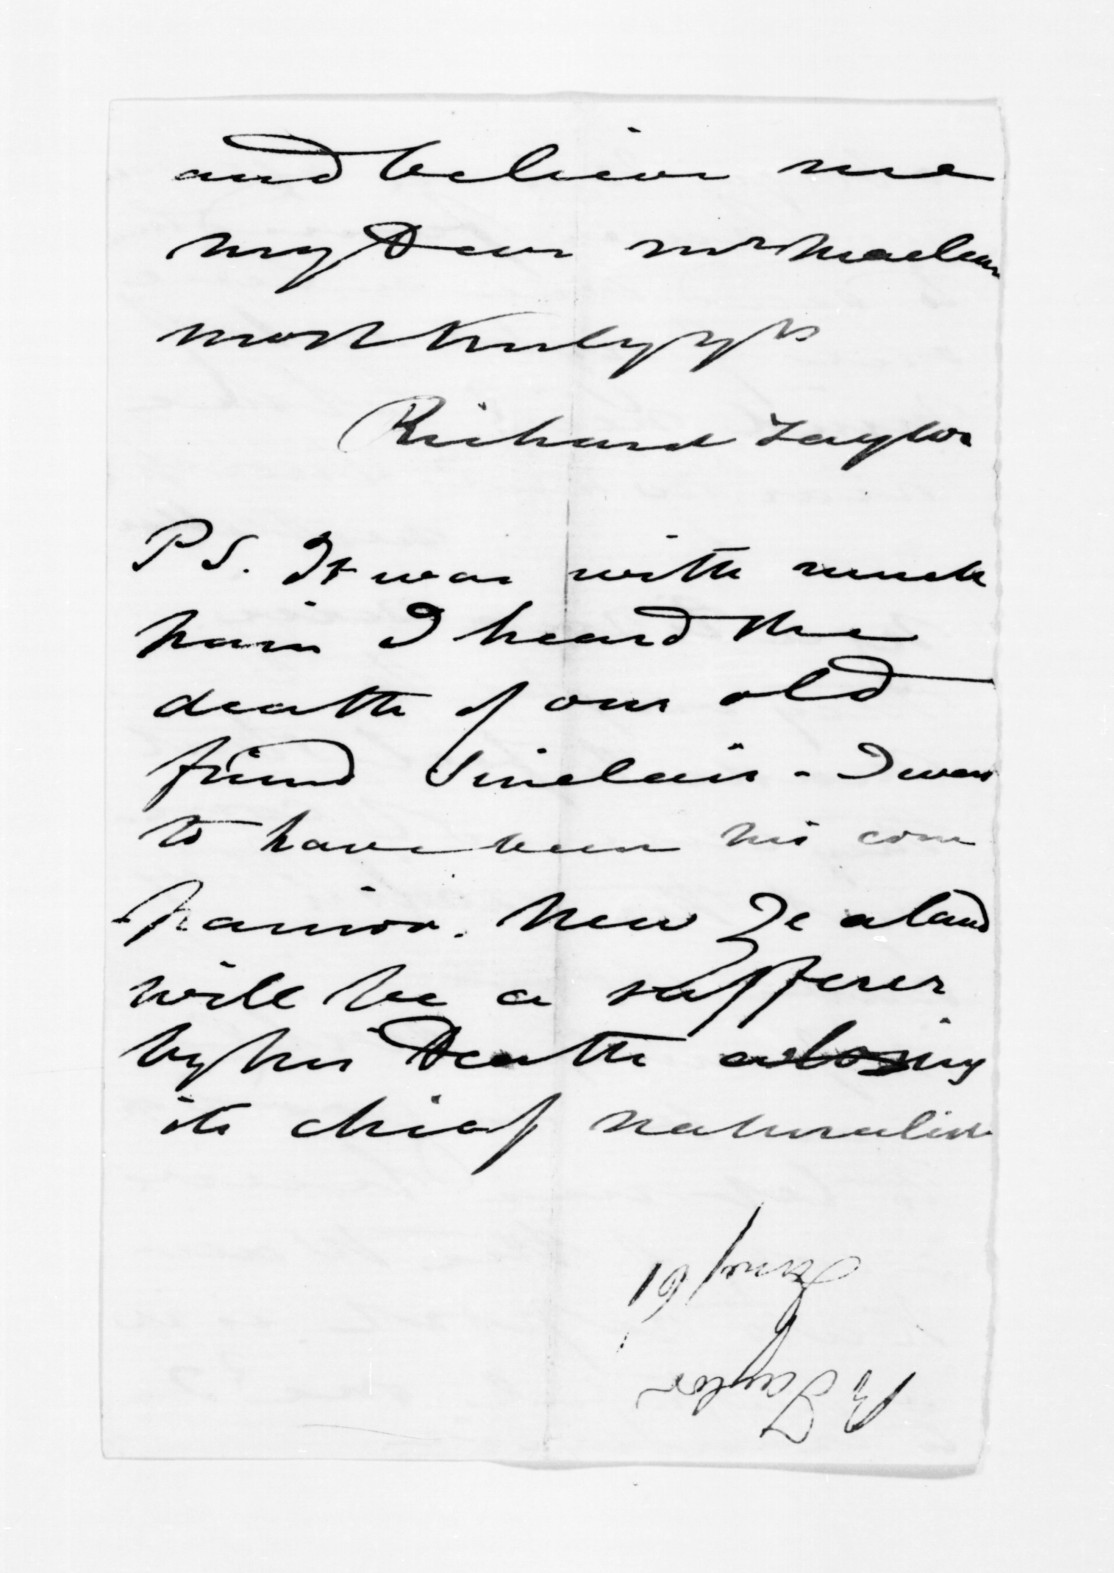 and believe me
my Dear Mr Maclean
most truly yrs
Richard Taylor
P S. It was with much
pain I heard the
death of our old
friend Sinclair - I was
to have been his com
-panion. New Zealand
will be a sufferer
by his Death a losing
its chief naturalist
R Taylor
June/61